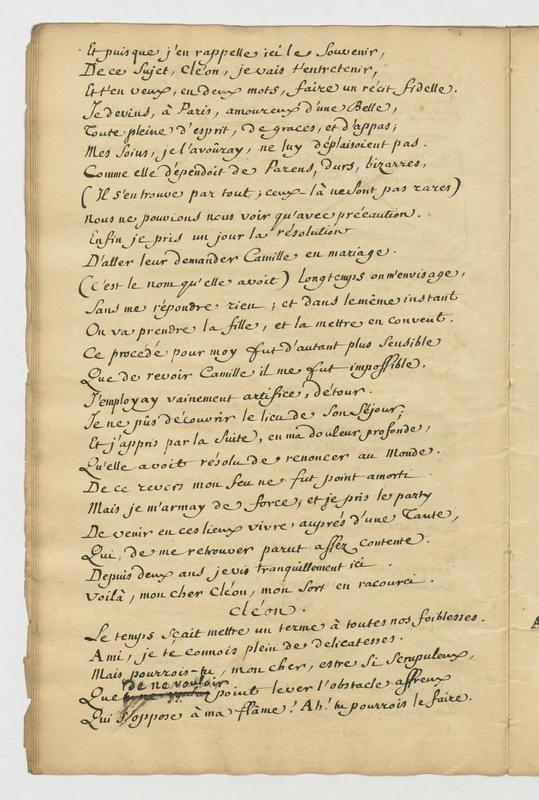 Et puisque j'en rappelle ici le Souvenir,
De ce Sujet, Cléon, je vais t'entretenir,
Et t'en veux, en deux mots, faire un récit fidelle.
Je devins, à Paris, amoureux d'une Belle,
Toute pleine d'esprit, de graces, et d'appas;
Mes Soins, je l'avoûray, ne luy déplaisoient pas.
Comme elle dépendoit de Parens, durs, bizarres,
(Il s'en trouve par tout; ceux-là ne Sont pas rares)
Nous ne pouvions nous voir qu'avec précaution.
Enfin je pris un jour la résolution
D'aller leur demander Camille en mariage.
(C'est le nom qu'elle avoit) longtemps on m'envisage,
Sans me répondre rien; et dans le même instant
On va prendre la fille, et la mettre en convent.
Ce procédé pour moy fut d'autant plus Sensible
Que de revoir Camille il me fut impossible.
J'employay vainement artifice, détour.
Je ne pûs découvrir le lieu de Son Séjour;
Et j'appris par la Suite, en ma douleur profonde,
Qu'elle avoit résolu de renoncer au Monde.
De ce revers mon feu ne fut point amorti
Mais je m'armay de force, et je pris le party
De venir en ces lieux vivre auprés d'une Tante,
Qui, de me retrouver parut assez contente.
Depuis deux ans je vis tranquillement ici.
Voilà, mon cher Cléon, mon Sort en racourci.
Cléon.
Le temps Sçait mettre un terme à toutes nos foiblesses.
Ami, je te connois plein de délicatesses.
Mais pourrois-tu, mon cher, estre Si Scrupuleux,
Que de ne vouloir point lever l'obstacle affreux
Qui S'oppose à ma flâme? Ah! tu pourrois le faire.